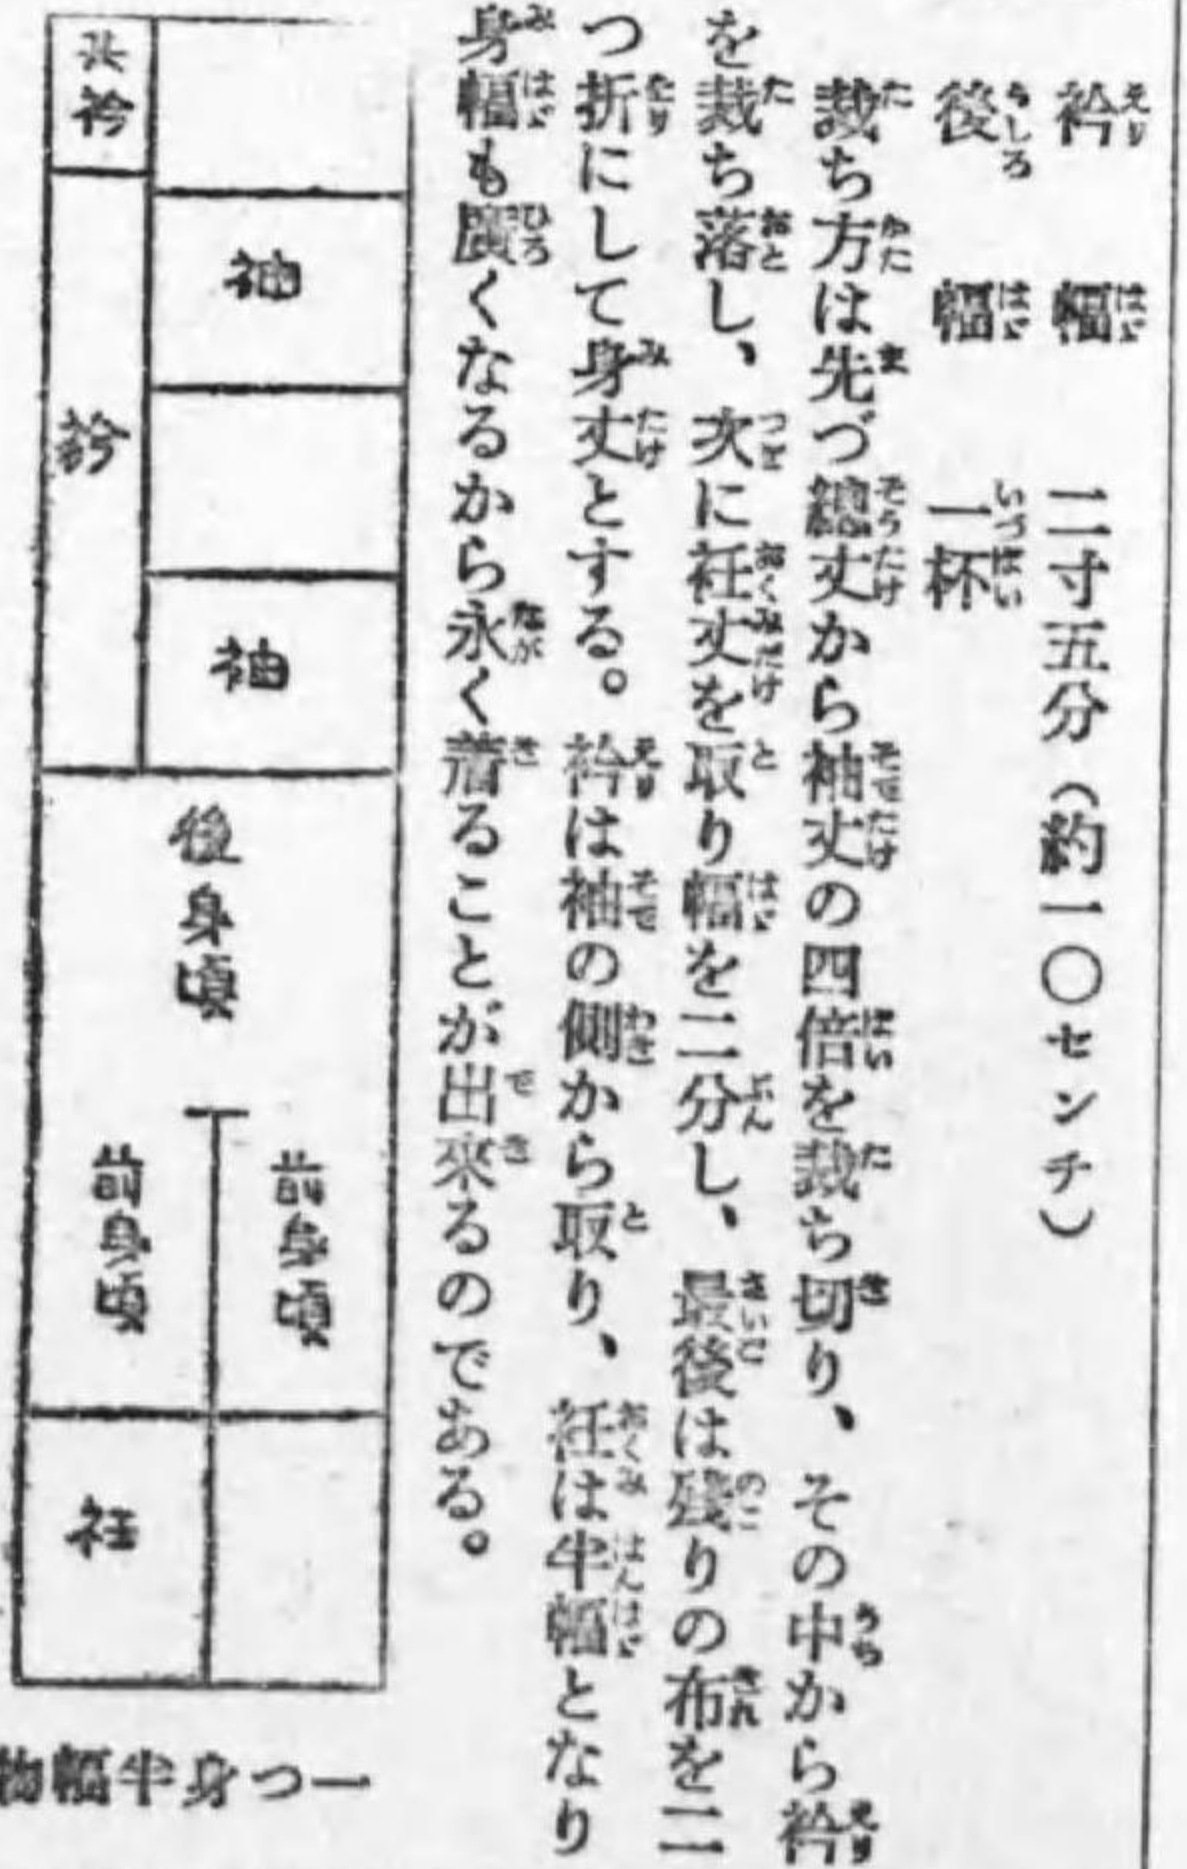 衿幅 二寸五分（約一〇センチ）
後幅 一杯
裁ち方は先づ總丈から袖丈の四倍を裁ち切り、その中から衿
を裁ち落し、次に衽丈を取り幅を二分し、最後は殘りの布を二
つ折にして身丈とする。衿は袖の側から取り、衽は半幅となり
身幅も廣くなるから永く着ることが出來るのである。
共衿
袖
衿
袖
後身頃
前身頃
前身頃
衽
一つ身半幅物